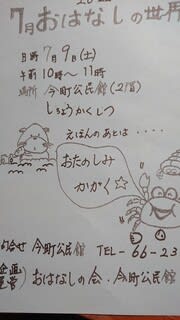 7月おはなしの世界
日時 7月9日(土)
午前10時〜11時
場所 今町公民館(2階)
しちょうかくしつ
えほんのあとは・・・・
おたのしみ
かがく☆
今町公民館 TEL-66-23
おはなしの会・今町公民館